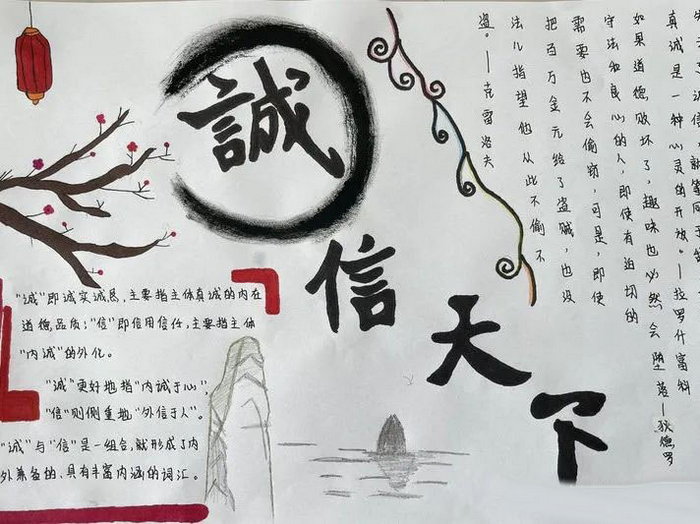 誠
信
天
下
了诚信,就等同于
真诚是一种心灵的开放。—拉罗什富料
如果道德败坏了,趣味也必然会堕落—狄德罗
守法和良心的人,即使有迫切的
需要也不会偷窃,可是,即使
把百万金元给了盗贼,也没
法儿指望他从此不偷不
盗。—克雷洛夫
"诚"即诚实诚恳,主要指主体真诚的内在
道德品质;"信"即信用信任,主要指主体
"内诚"的外化。
"诚"更好地指"内诚于心",
"信"则侧重地"外信于人"。
"诚"与"信"是一组合,就形成了内
外兼备的、具有丰富内涵的词汇。